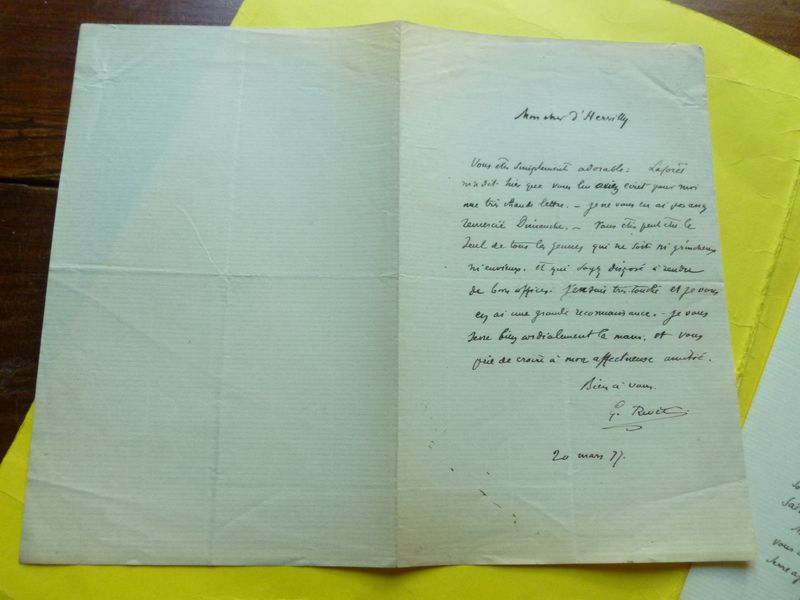 Mon cher d'Hervilly
Vous êtes simplement adorable: Laforêt
m'a dit hier que vous lui aviez écrit pour moi
une très chaude lettre. - je ne vous en ai pas assez
remercié Dimanche. - Vous êtes peut être le
seul de tous les jeunes qui ne soit ni grincheux
ni envieux, et qui soyez disposé à rendre
de bons offices. J'en suis très touché et je vous
en ai une grande reconnaissance. - je vous
serre bien cordialement la main, et vous
prie de croire à mon affectueuse amitié.
Bien à vous.
G.
20 mars 77.
vous
serre